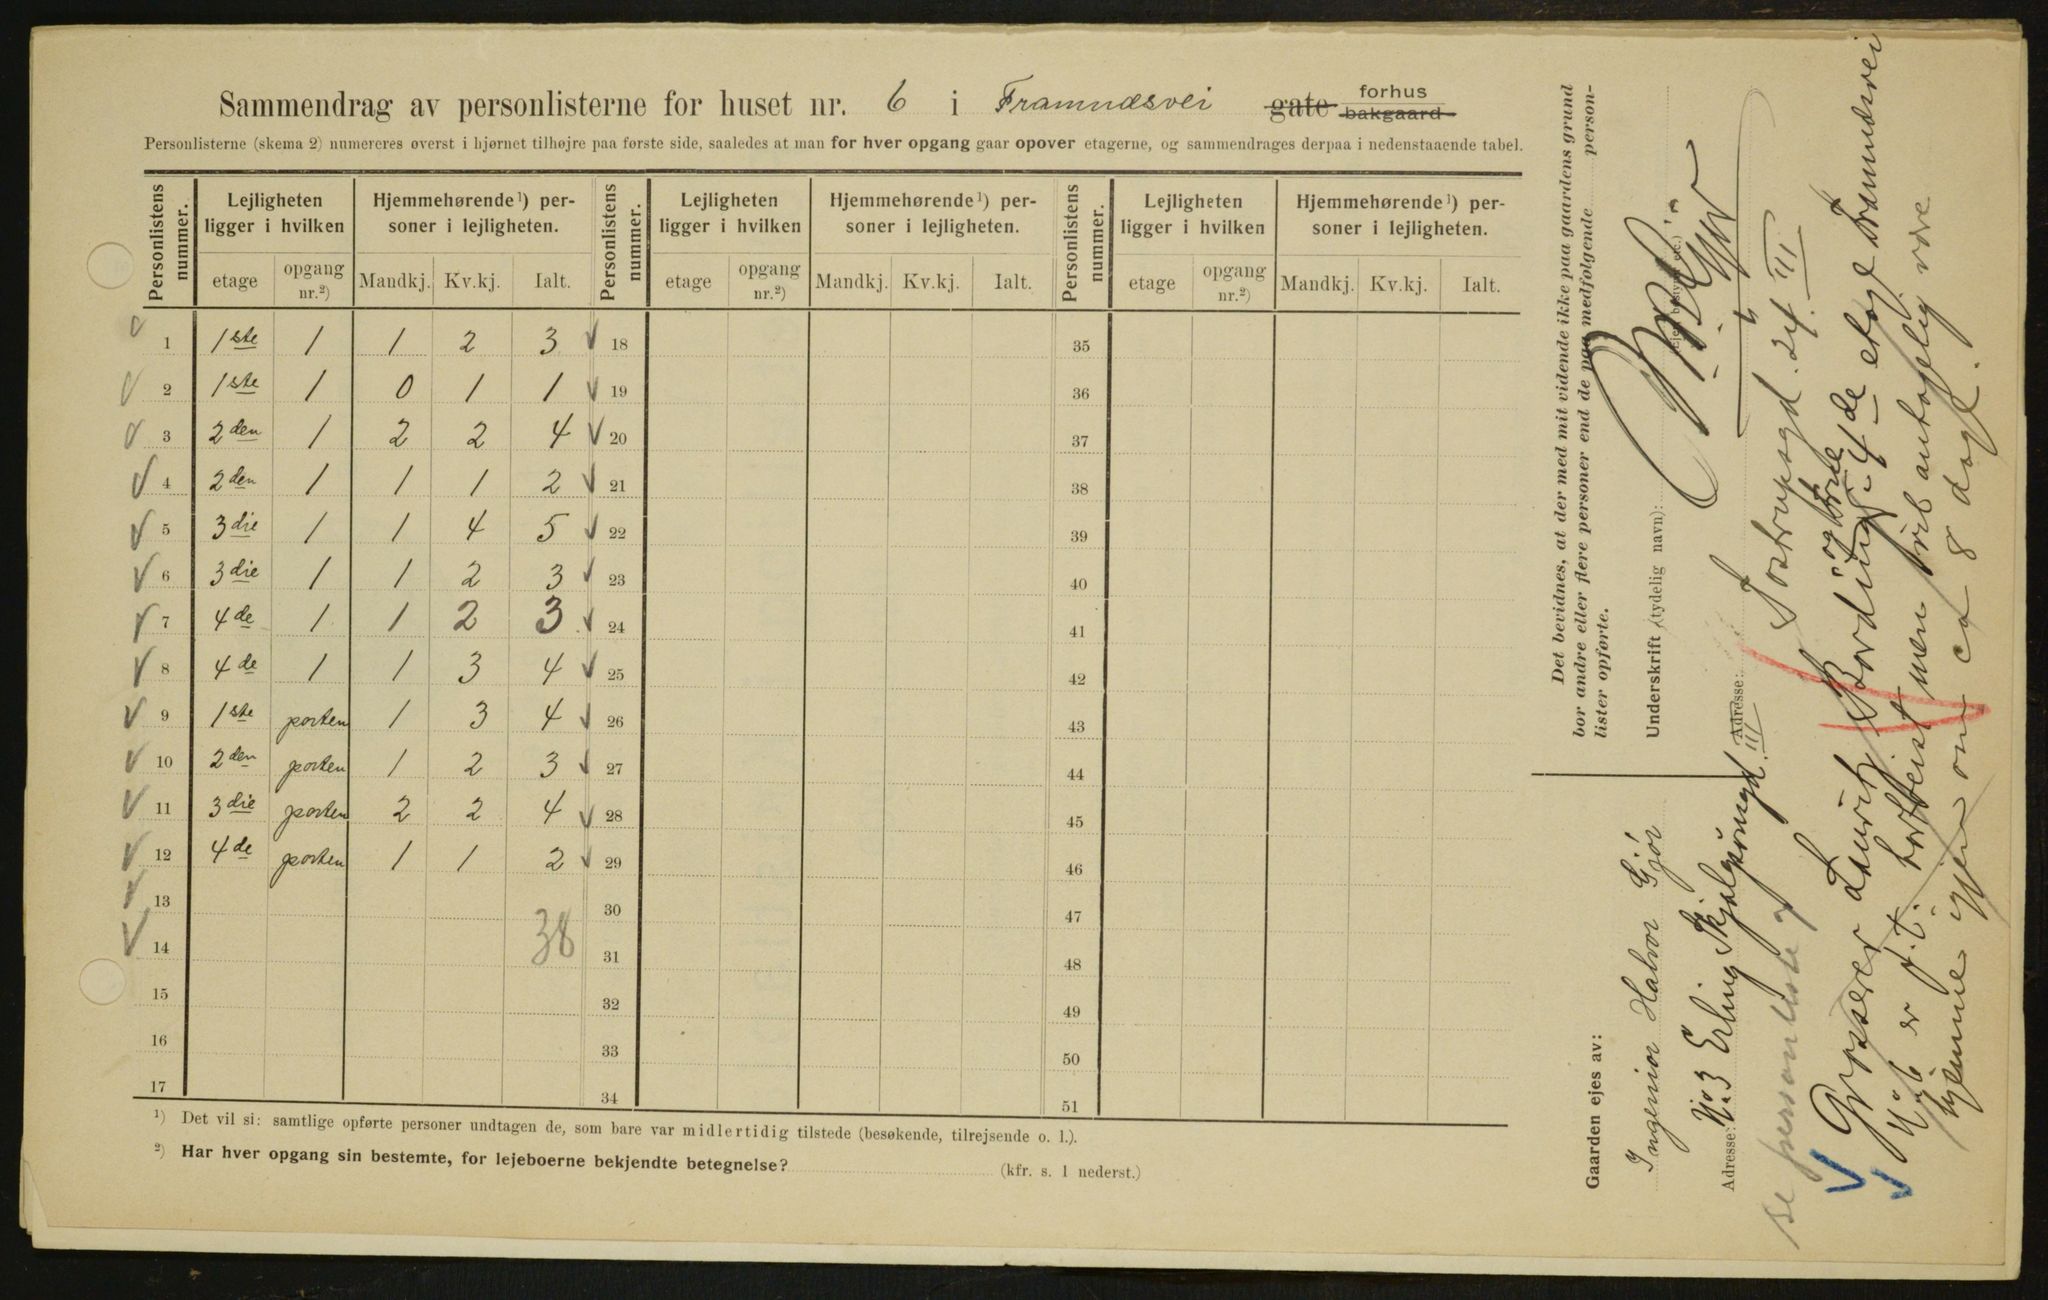 Sammendrag av personlisterne for huset nr. 6 i Framnæsvei gate forhus bakgaard
Personlisterne (skema 2) numereres øverst i hjørnet tilhøjre paa første side, saaledes at man for hver opgang gaar opover etagerne, og sammendrages derpaa i nedenstaaende tabel.
Personlistens nummer. Lejligheten ligger i hvilken Hjemmehørende¹) personer i lejligheten. Personlistens nummer. Lejligheten ligger i hvilken Hjemmehørende¹) personer i lejligheten. Personlistens nummer. Lejligheten ligger i hvilken Hjemmehørende¹) personer i lejligheten.
etage opgang nr.²) Mandkj. Kv.kj. Ialt. etage opgang nr.²) Mandkj. Kv.kj. Ialt. etage opgang nr.²) Mandkj. Kv.kj. Ialt.
1 1ste 1 1 2 3 18 35
2 1ste 1 0 1 1 19 36
3 2den 1 2 2 4 20 37
4 2den 1 1 1 2 21 38
5 3die 1 1 4 5 22 39
6 3die 1 1 2 3 23 40
7 4de 1 1 2 3 24 41
8 4de 1 1 3 4 25 42
9 1ste porten 1 3 4 26 43
10 2den porten 1 2 3 27 44
11 3die porten 2 2 4 28 45
12 4de porten 1 1 2 29 46
13 30 47
14 38 31 48
15 32 49
16 33 50
17 34 51
¹) Det vil si: samtlige opførte personer undtagen de, som bare var midlertidig tilstede (besøkende, tilrejsende o. l.).
²) Har hver opgang sin bestemte, for lejeboerne bekjendte betegnelse? (kfr. s. 1 nederst.)
Det bevidnes, at der med mit vidende ikke paa gaardens grund
bor andre eller flere personer end de paa medfølgende person-
lister opførte.
Underskrift (tydelig navn):
Adresse: Tostrupsgd. 24 III
Gaarden ejes av:
Ingeniør Halvor Gjör
Adresse: No 3 Erling Skjalgsönsgd. III
se personliste 7
Grosserer Lauritz Bording og frue 4de etage Framnæsvei
No 6 er p.t. bortreist men vil antagelig være
hjemme igjen om ca 8 dage.